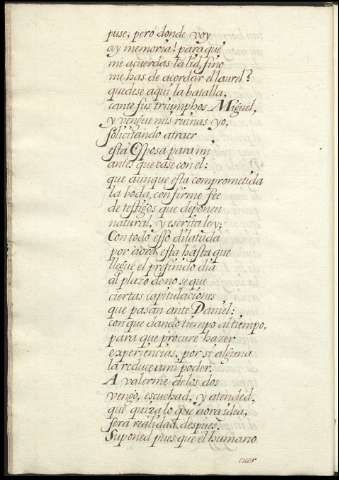 puse, pero donde voy
ay memoria! para que
me acuerdas la lid, sino
me has de acordar el laurel?
quedese aqui la batalla,
cante sus triumphos Miguel,
y vengue mis ruinas yo,
solicitando atraer
esta Esposa para mi
antes que case con el:
que aunque esta comprometida
la boda, con firme fee
de testigos que deponen
natural, y escrita ley;
Con todo esso dilatada
por aora esta hasta que
llegue el prefinido dia
al plazo de no se que
ciertas capitulaciones
que pasan ante Daniel:
con que dando tiempo al tiempo,
para que procure hazer
experiencias, por si alguna
la reduce a mi poder.
A valerme de los dos
vengo, escuchad, y atended,
que quiza lo que aora idea,
sera realidad despues.
Suponed pues que el humano